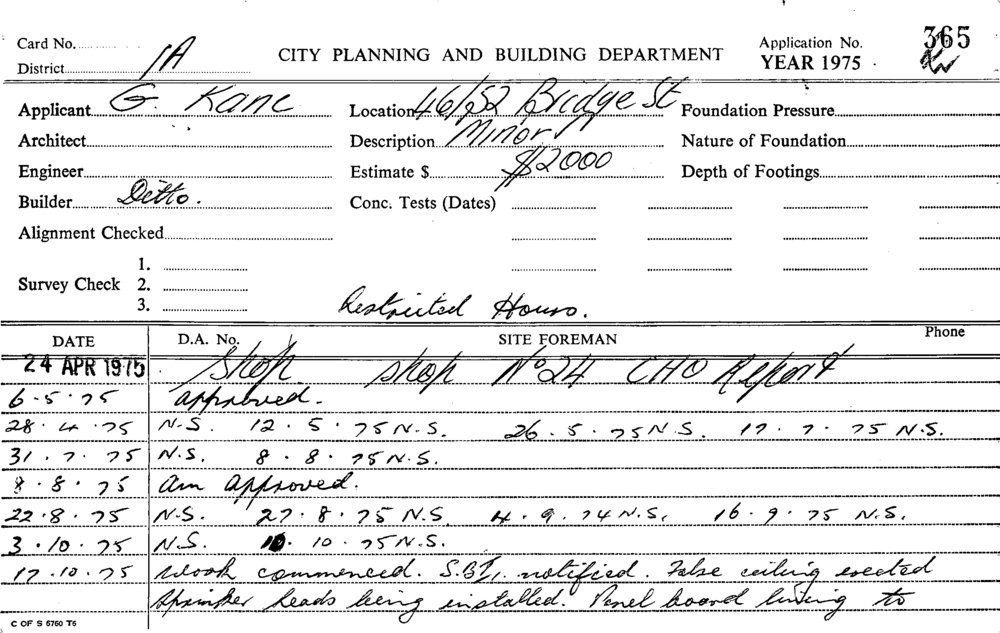 Card No. CITY PLANNING AND BUILDING DEPARTMENT Application No. 365
District 1A YEAR 1975
Applicant G. Kane Location 46/52 Bridge St Foundation Pressure
Architect Description Minor Nature of Foundation
Engineer Estimate $ $2000 Depth of Footings
Builder Ditto. Conc. Tests (Dates)
Alignment Checked
1.
Survey Check 2.
3. Restricted Hours.
DATE D.A. No. SITE FOREMAN Phone
24 APR 1975 Shop shop No 24 CHO Report
6.5.75 approved.
28.4.75 N.S. 12.5.75 N.S. 26.5.75 N.S. 17.7.75 N.S.
31.7.75 N.S. 8.8.75 N.S.
8.8.75 Am approved.
22.8.75 N.S. 27.8.75 N.S. 4.9.74 N.S. 16.9.75 N.S.
3.10.75 N.S. 10.10.75 N.S.
17.10.75 work commenced. S.B.I. notified. False ceiling erected
Sprinker heads being installed. Panel board lining to
C OF S 6760 T6